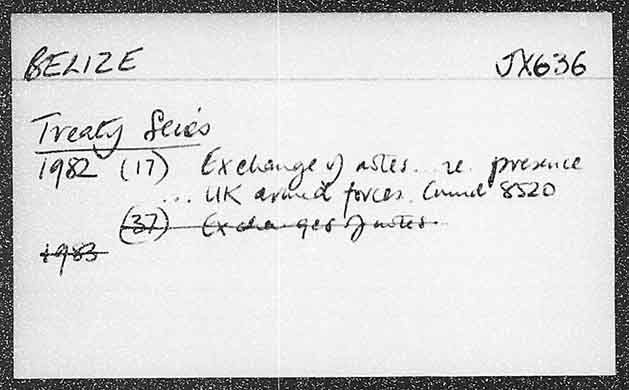 BELIZE JX636
Treaty Series
1982 (17) Exchange of notes... re. presence
... UK armed forces. Cmnd 8520
(37) Exchanges of notes.
1983